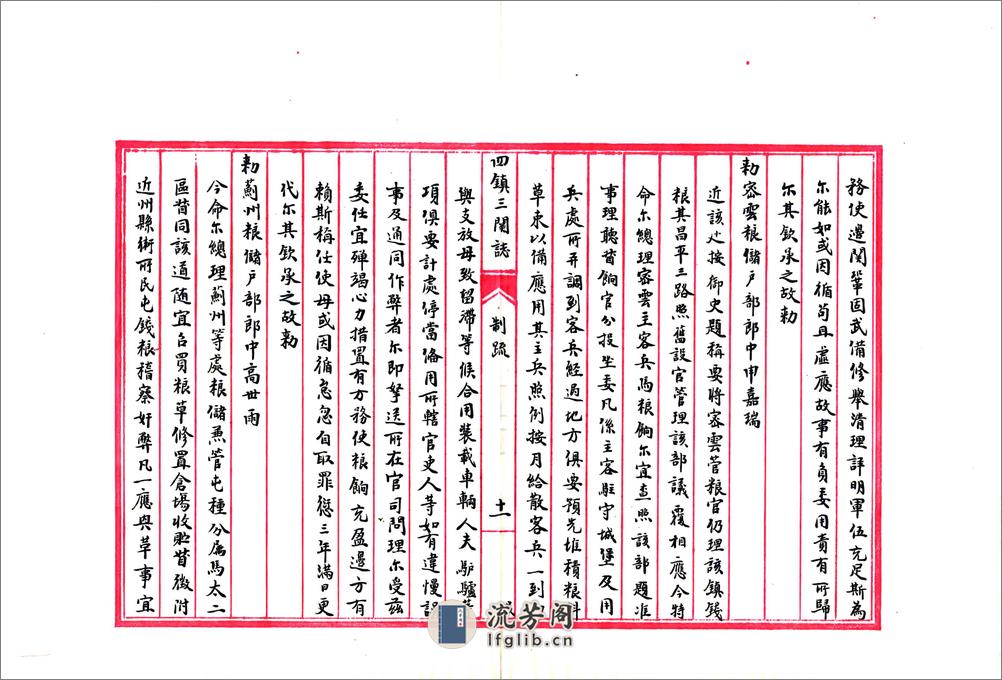 務使邊関鞏固武備修舉清理詳明軍伍充足斯為
尔能如或因循苟且虛應故事有負委用責有所歸
尔其欽承之故勅
勅密雲粮儲戶部郎中申嘉瑞
近該廵按御史題稱要將密雲管粮官仍理該鎮錢
粮其昌平三路照舊設官管理該部議覆相應今特
命尔總理密雲主客兵馬粮餉尔宜查照該部題准
事理聽督餉官分投坐委凡係主客駐守城堡及用
兵處所并調到客兵經過地方俱要預先堆積粮料
草束以備應用其主兵照例按月給散客兵一到
四鎮三関誌
制疏
十一
與支放毋致留滯等候合用裝載車輛人夫馿驢
項俱要計處停當俻用所轄官吏人等如有違慢誤
事及通同作弊者尔即拏送所在官司問理尔受茲
委任宜殫竭心力措置有方務使粮餉充盈邊方有
賴斯稱任使毋或因循怠忽自取罪愆三年滿日更
代尔其欽承之故勅
勅薊州粮儲戶部郎中高世雨
今命尔總理薊州等處粮儲兼管屯種分属馬太二
區督同該道随宜召買粮草修置倉場收貯督徵附
近州縣衛所民屯錢粮稽察奸弊凡一應與草事宜
流芳阁
lfglib.cn